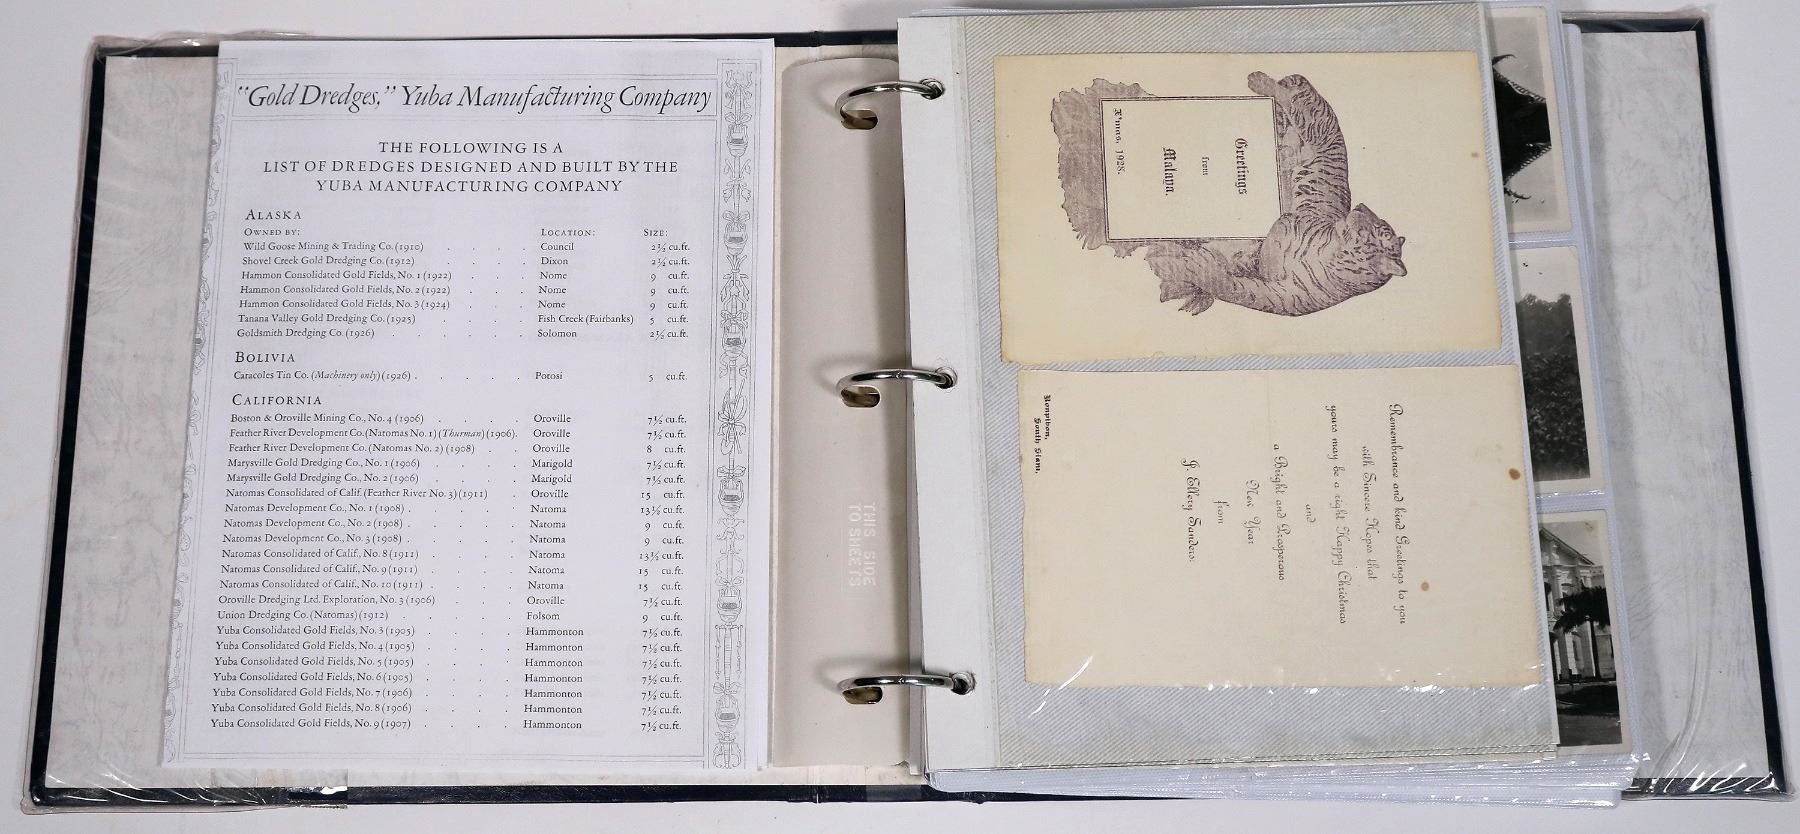 “Gold Dredges,” Yuba Manufacturing Company
THE FOLLOWING IS A
LIST OF DREDGES DESIGNED AND BUILT BY THE
YUBA MANUFACTURING COMPANY
ALASKA
OWNED BY: LOCATION: SIZE:
Wild Goose Mining & Trading Co. (1910) . . . . Council 2½ cu.ft.
Shovel Creek Gold Dredging Co. (1912) . . . . Dixon 2½ cu.ft.
Hammon Consolidated Gold Fields, No. 1 (1922) . . . Nome 9 cu.ft.
Hammon Consolidated Gold Fields, No. 2 (1922) . . . Nome 9 cu.ft.
Hammon Consolidated Gold Fields, No. 3 (1924) . . . Nome 9 cu.ft.
Tanana Valley Gold Dredging Co. (1925) . . . . Fish Creek (Fairbanks) 5 cu.ft.
Goldsmith Dredging Co. (1926) . . . . . Solomon 2½ cu.ft.
BOLIVIA
Caracoles Tin Co. (Machinery only) (1926) . . . . Potosi 5 cu.ft.
CALIFORNIA
Boston & Oroville Mining Co., No. 4 (1906) . . . . Oroville 7½ cu.ft.
Feather River Development Co. (Natomas No. 1) (Thurman) (1906) . Oroville 7½ cu.ft.
Feather River Development Co. (Natomas No. 2) (1908) . . Oroville 8 cu.ft.
Marysville Gold Dredging Co., No. 1 (1906) . . . . Marigold 7½ cu.ft.
Marysville Gold Dredging Co., No. 2 (1906) . . . . Marigold 7½ cu.ft.
Natomas Consolidated of Calif. (Feather River No. 3) (1911) . Oroville 15 cu.ft.
Natomas Development Co., No. 1 (1908) . . . . Natoma 13½ cu.ft.
Natomas Development Co., No. 2 (1908) . . . . Natoma 9 cu.ft.
Natomas Development Co., No. 3 (1908) . . . . Natoma 9 cu.ft.
Natomas Consolidated of Calif., No. 8 (1911) . . . . Natoma 13½ cu.ft.
Natomas Consolidated of Calif., No. 9 (1911) . . . . Natoma 15 cu.ft.
Natomas Consolidated of Calif., No. 10 (1911) . . . . Natoma 15 cu.ft.
Oroville Dredging Ltd. Exploration, No. 3 (1906) . . . Oroville 7½ cu.ft.
Union Dredging Co. (Natomas) (1912) . . . . . Folsom 9 cu.ft.
Yuba Consolidated Gold Fields, No. 3 (1905) . . . . Hammonton 7½ cu.ft.
Yuba Consolidated Gold Fields, No. 4 (1905) . . . . Hammonton 7½ cu.ft.
Yuba Consolidated Gold Fields, No. 5 (1905) . . . . Hammonton 7½ cu.ft.
Yuba Consolidated Gold Fields, No. 6 (1905) . . . . Hammonton 7½ cu.ft.
Yuba Consolidated Gold Fields, No. 7 (1906) . . . . Hammonton 7½ cu.ft.
Yuba Consolidated Gold Fields, No. 8 (1906) . . . . Hammonton 7½ cu.ft.
Yuba Consolidated Gold Fields, No. 9 (1907) . . . . Hammonton 7½ cu.ft.
THIS SIDE
TO SHEETS
Greetings
from
Malaya.
X'mas, 1928.
Remembrance and kind Greetings to you
with Sincere Hopes that
yours may be a right Happy Christmas
and
a Bright and Prosperous
New Year
from
J. Ellery Sanders.
Ronpibon,
South Siam.